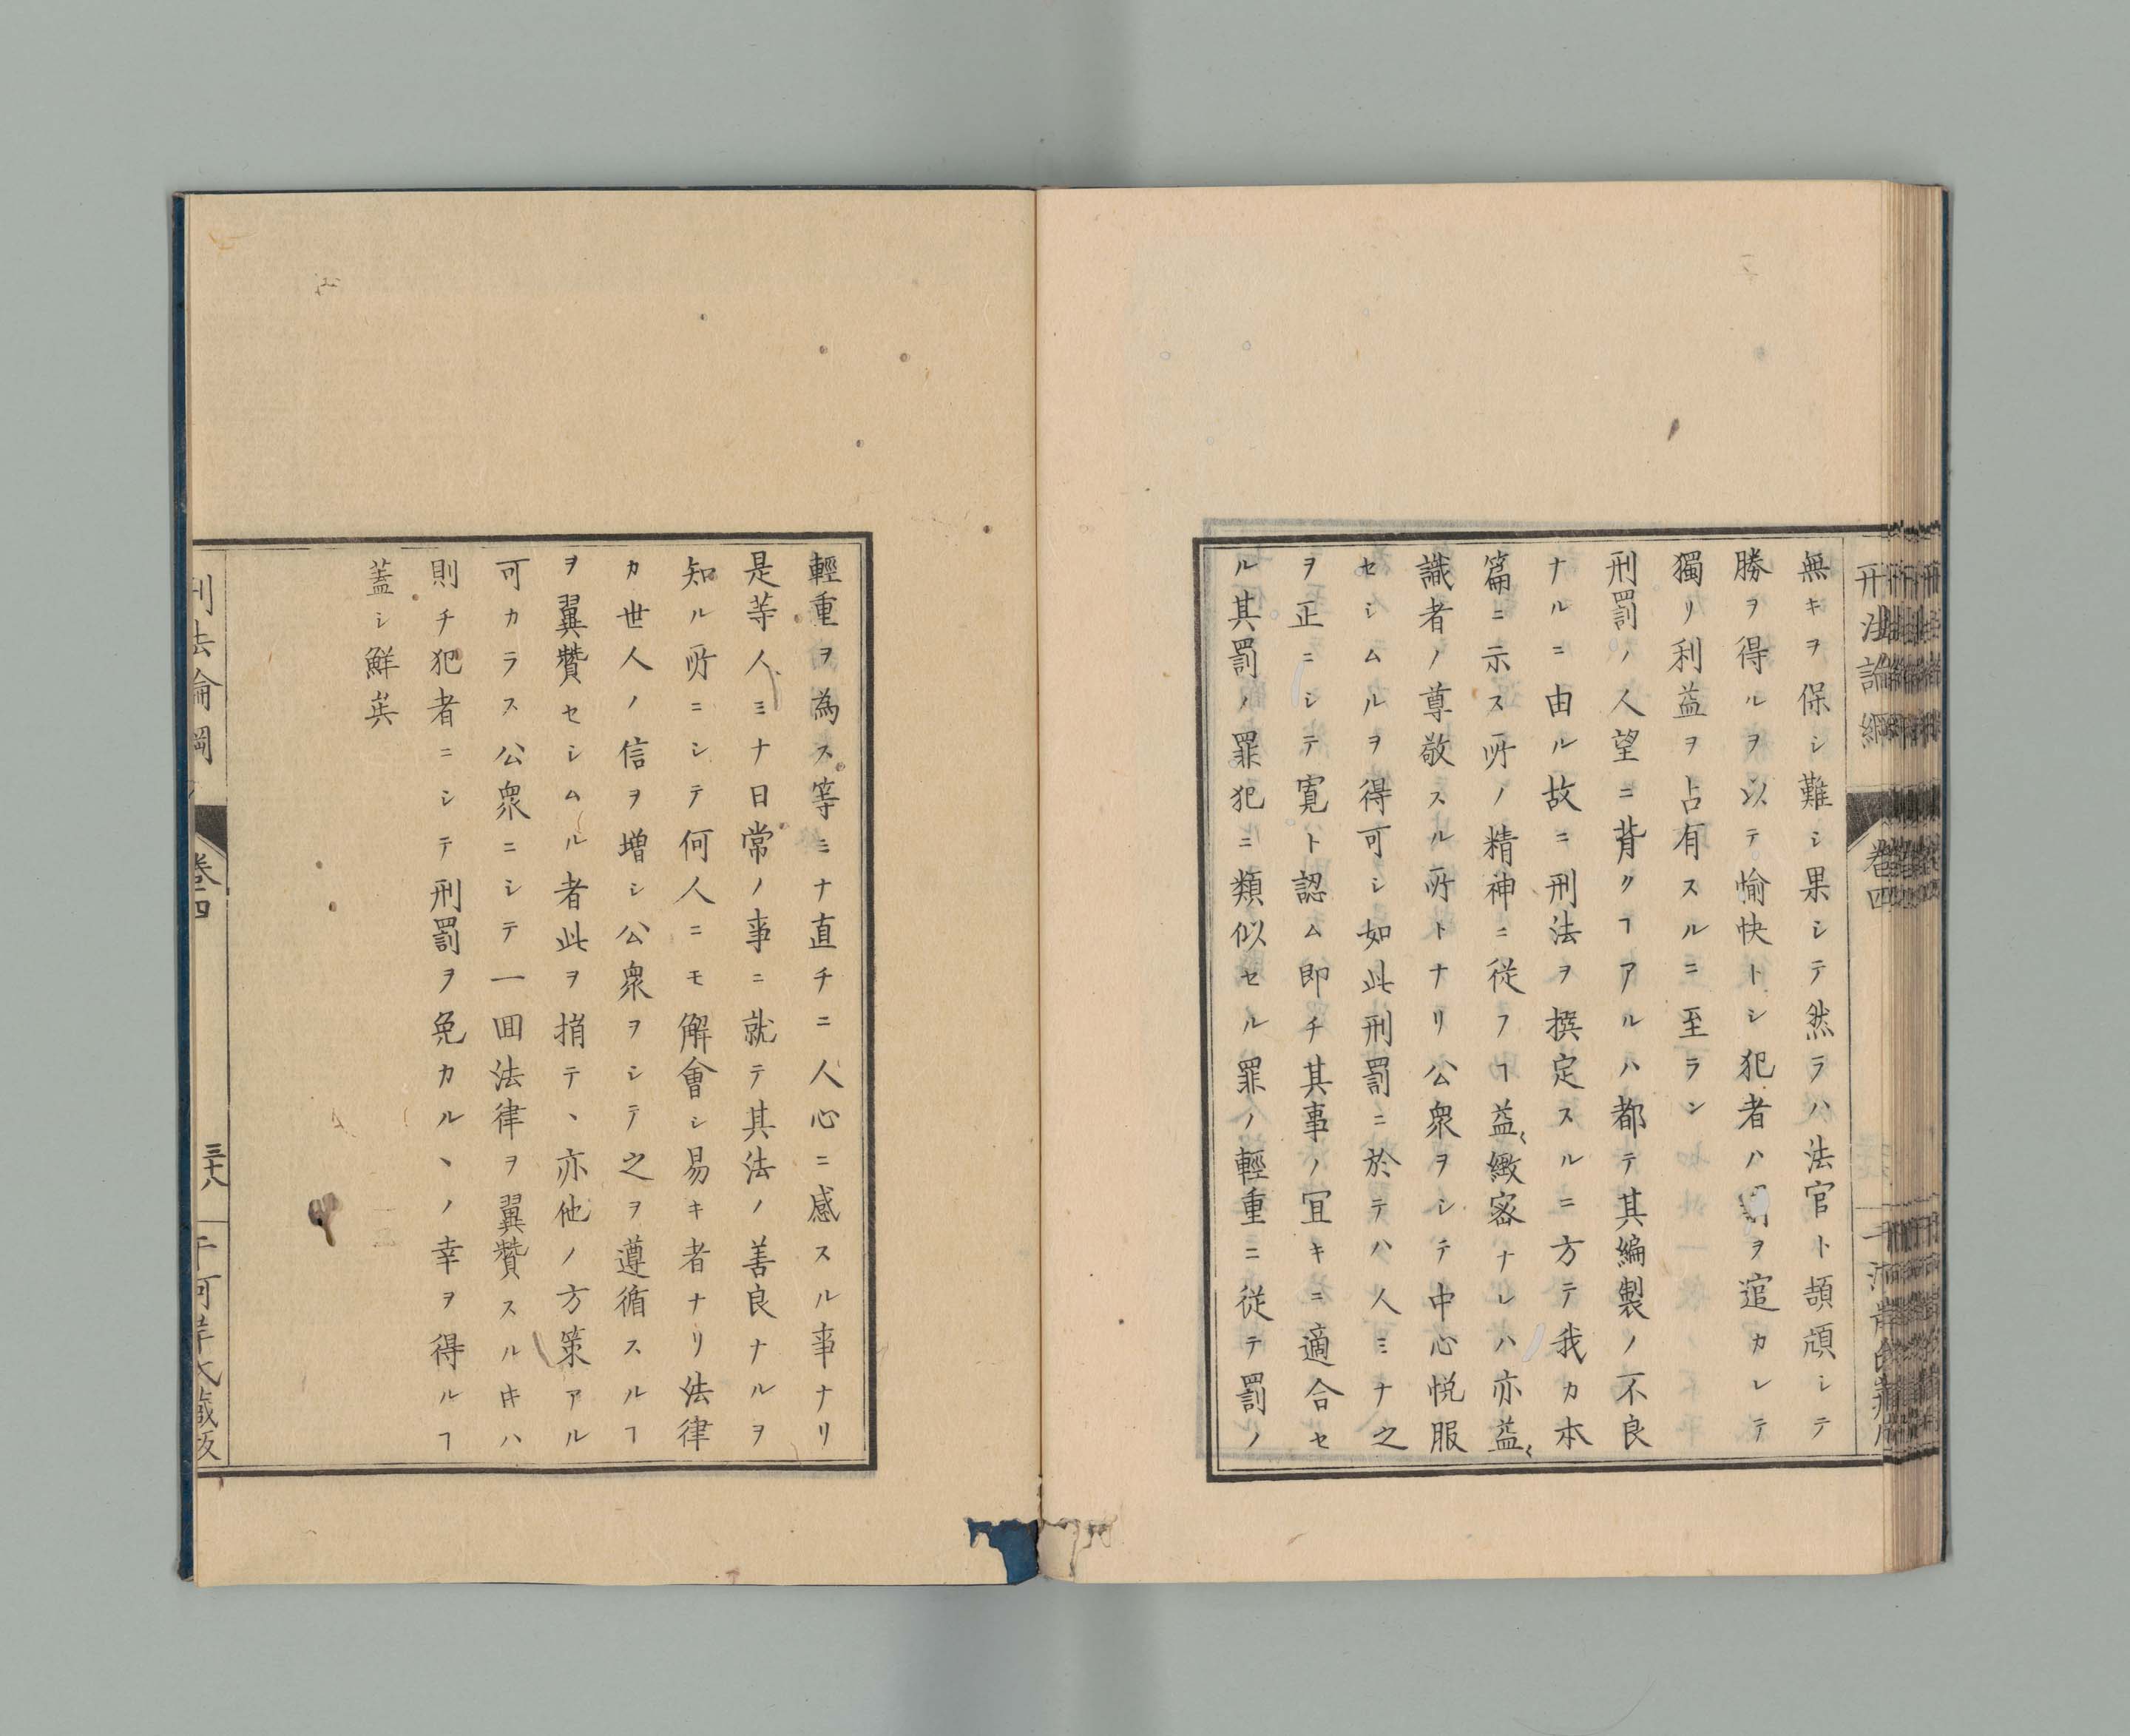 刑法論綱
卷四
無キヲ保シ難シ果シテ然ラハ法官ト頡頏シテ
勝ヲ得ルヲ以テ愉快トシ犯者ハヲ逭カレテ
獨リ利益ヲ占有スルニ至ラン
刑罰ノ人望ニ背クヿアルハ都テ其編製ノ不良
ナルニ由ル故ニ刑法ヲ撰定スルニ方テ我カ本
篇ニ示ス所ノ精神ニ從フヿ益〻緻密ナレハ亦益〻
識者ノ尊敬スル所トナリ公衆ヲシテ中心悦服
セシムルヲ得可シ如此刑罰ニ於テハ人ミナ之
ヲ正ニシテ寛ト認ム即チ其事ノ冝キニ適合セ
ル其罰ノ罪犯ニ類似セル罪ノ輕重ニ從テ罰ノ
輕重ヲ為ス等ミナ直チニ人心ニ感スル事ナリ
是等人ミナ日常ノ事ニ就テ其法ノ善良ナルヲ
知ル所ニシテ何人ニモ解會シ易キ者ナリ法律
カ世人ノ信ヲ增シ公衆ヲシテ之ヲ遵循スルヿ
ヲ翼贊セシムル者此ヲ捐テヽ亦他ノ方策アル
可カラス公衆ニシテ一囬法律ヲ翼贊スル𪜈ハ
則チ犯者ニシテ刑罰ヲ免カルヽノ幸ヲ得ルヿ
蓋シ鮮矣
刑法論綱
卷四
三十八
千河岸氏藏版